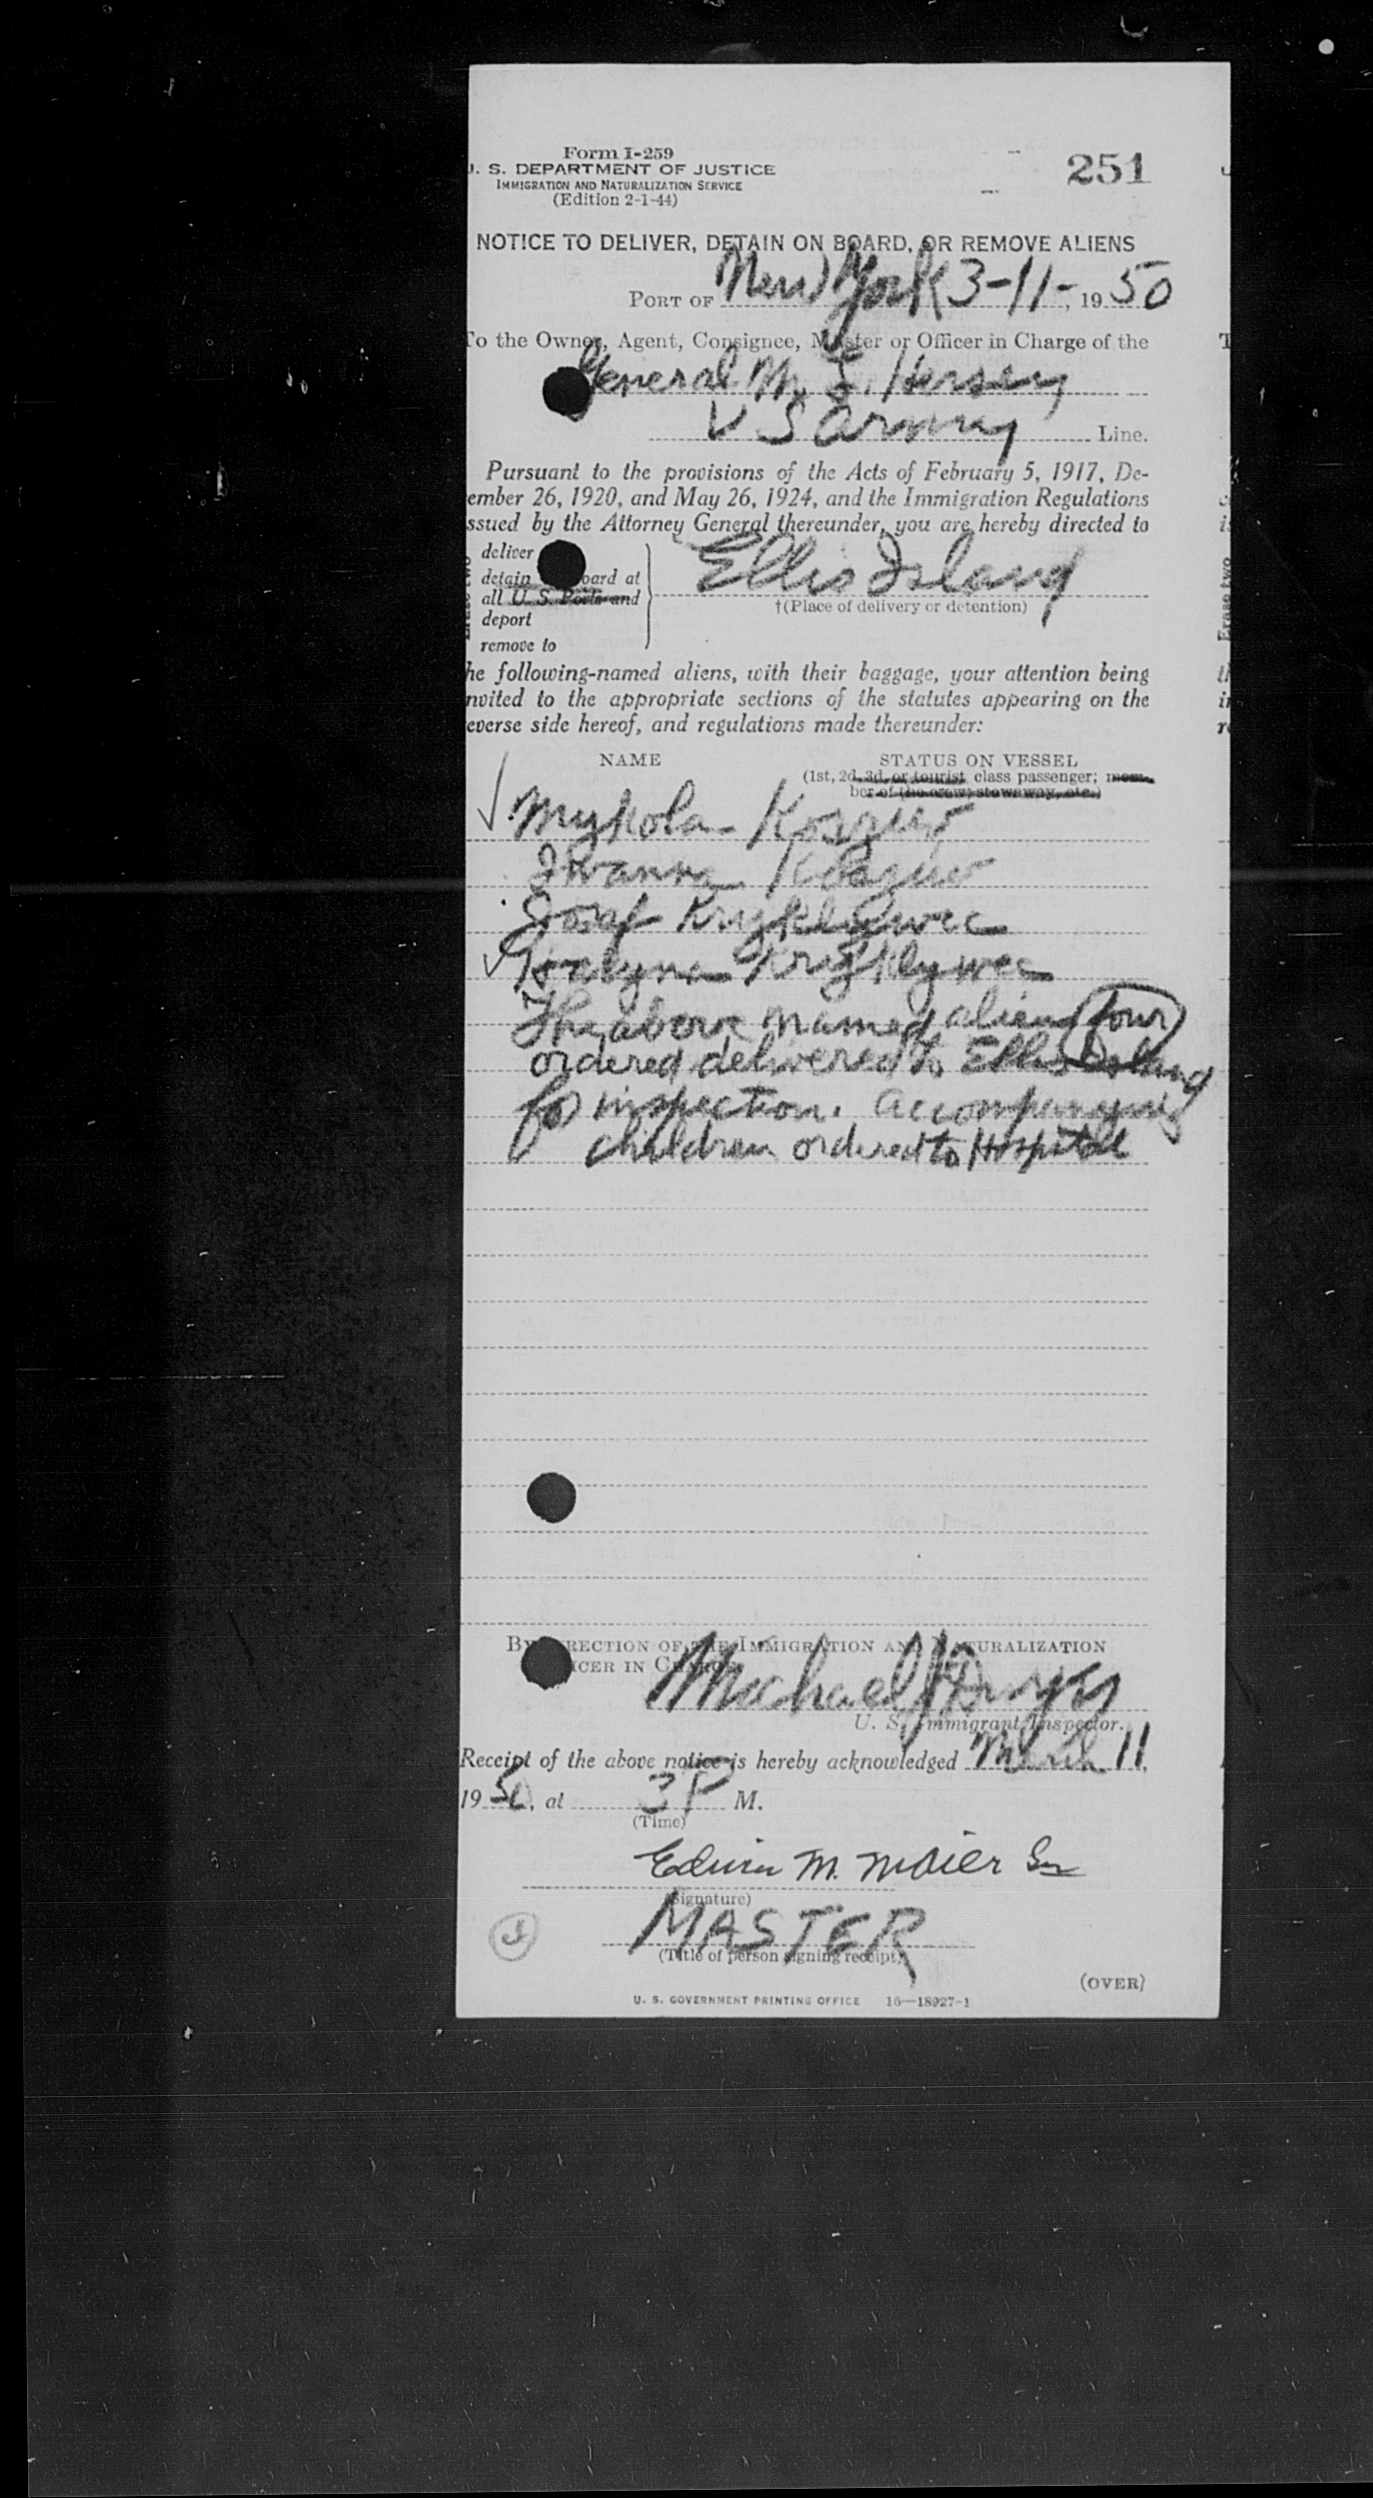 Form I-259
U. S. DEPARTMENT OF JUSTICE
IMMIGRATION AND NATURALIZATION SERVICE
(Edition 2-1-44)
251
NOTICE TO DELIVER, DETAIN ON BOARD, OR REMOVE ALIENS
PORT OF New York 3-11-, 19 50
To the Owner, Agent, Consignee, Master or Officer in Charge of the
General M. L. Hersey
U S Army Line.
Pursuant to the provisions of the Acts of February 5, 1917, De-
ember 26, 1920, and May 26, 1924, and the Immigration Regulations
ssued by the Attorney General thereunder, you are hereby directed to
deliver
detain board at
all U. S. Ports and
deport
remove to
Ellis Island
†(Place of delivery or detention)
he following-named aliens, with their baggage, your attention being
nvited to the appropriate sections of the statutes appearing on the
everse side hereof, and regulations made thereunder:
NAME STATUS ON VESSEL
(1st, 2d, 3d, or tourist class passenger; mem-
ber of (the crew) stowaway, etc.)
Mykola
Iwanna
Josef Kryklywec
Kryklywec
The above named aliens (four)
ordered delivered to Ellis Island
for inspection. Accompanying
children ordered to Hospital
BY DIRECTION OF THE IMMIGRATION AND NATURALIZATION
OFFICER IN CHARGE
Michael
U. S. Immigrant Inspector.
Receipt of the above notice is hereby acknowledged March 11,
19 50, at 3 P M.
(Time)
Edwin M. Maier
(Signature)
MASTER
(Title of person signing receipt)
(OVER)
U. S. GOVERNMENT PRINTING OFFICE 16—18927-1